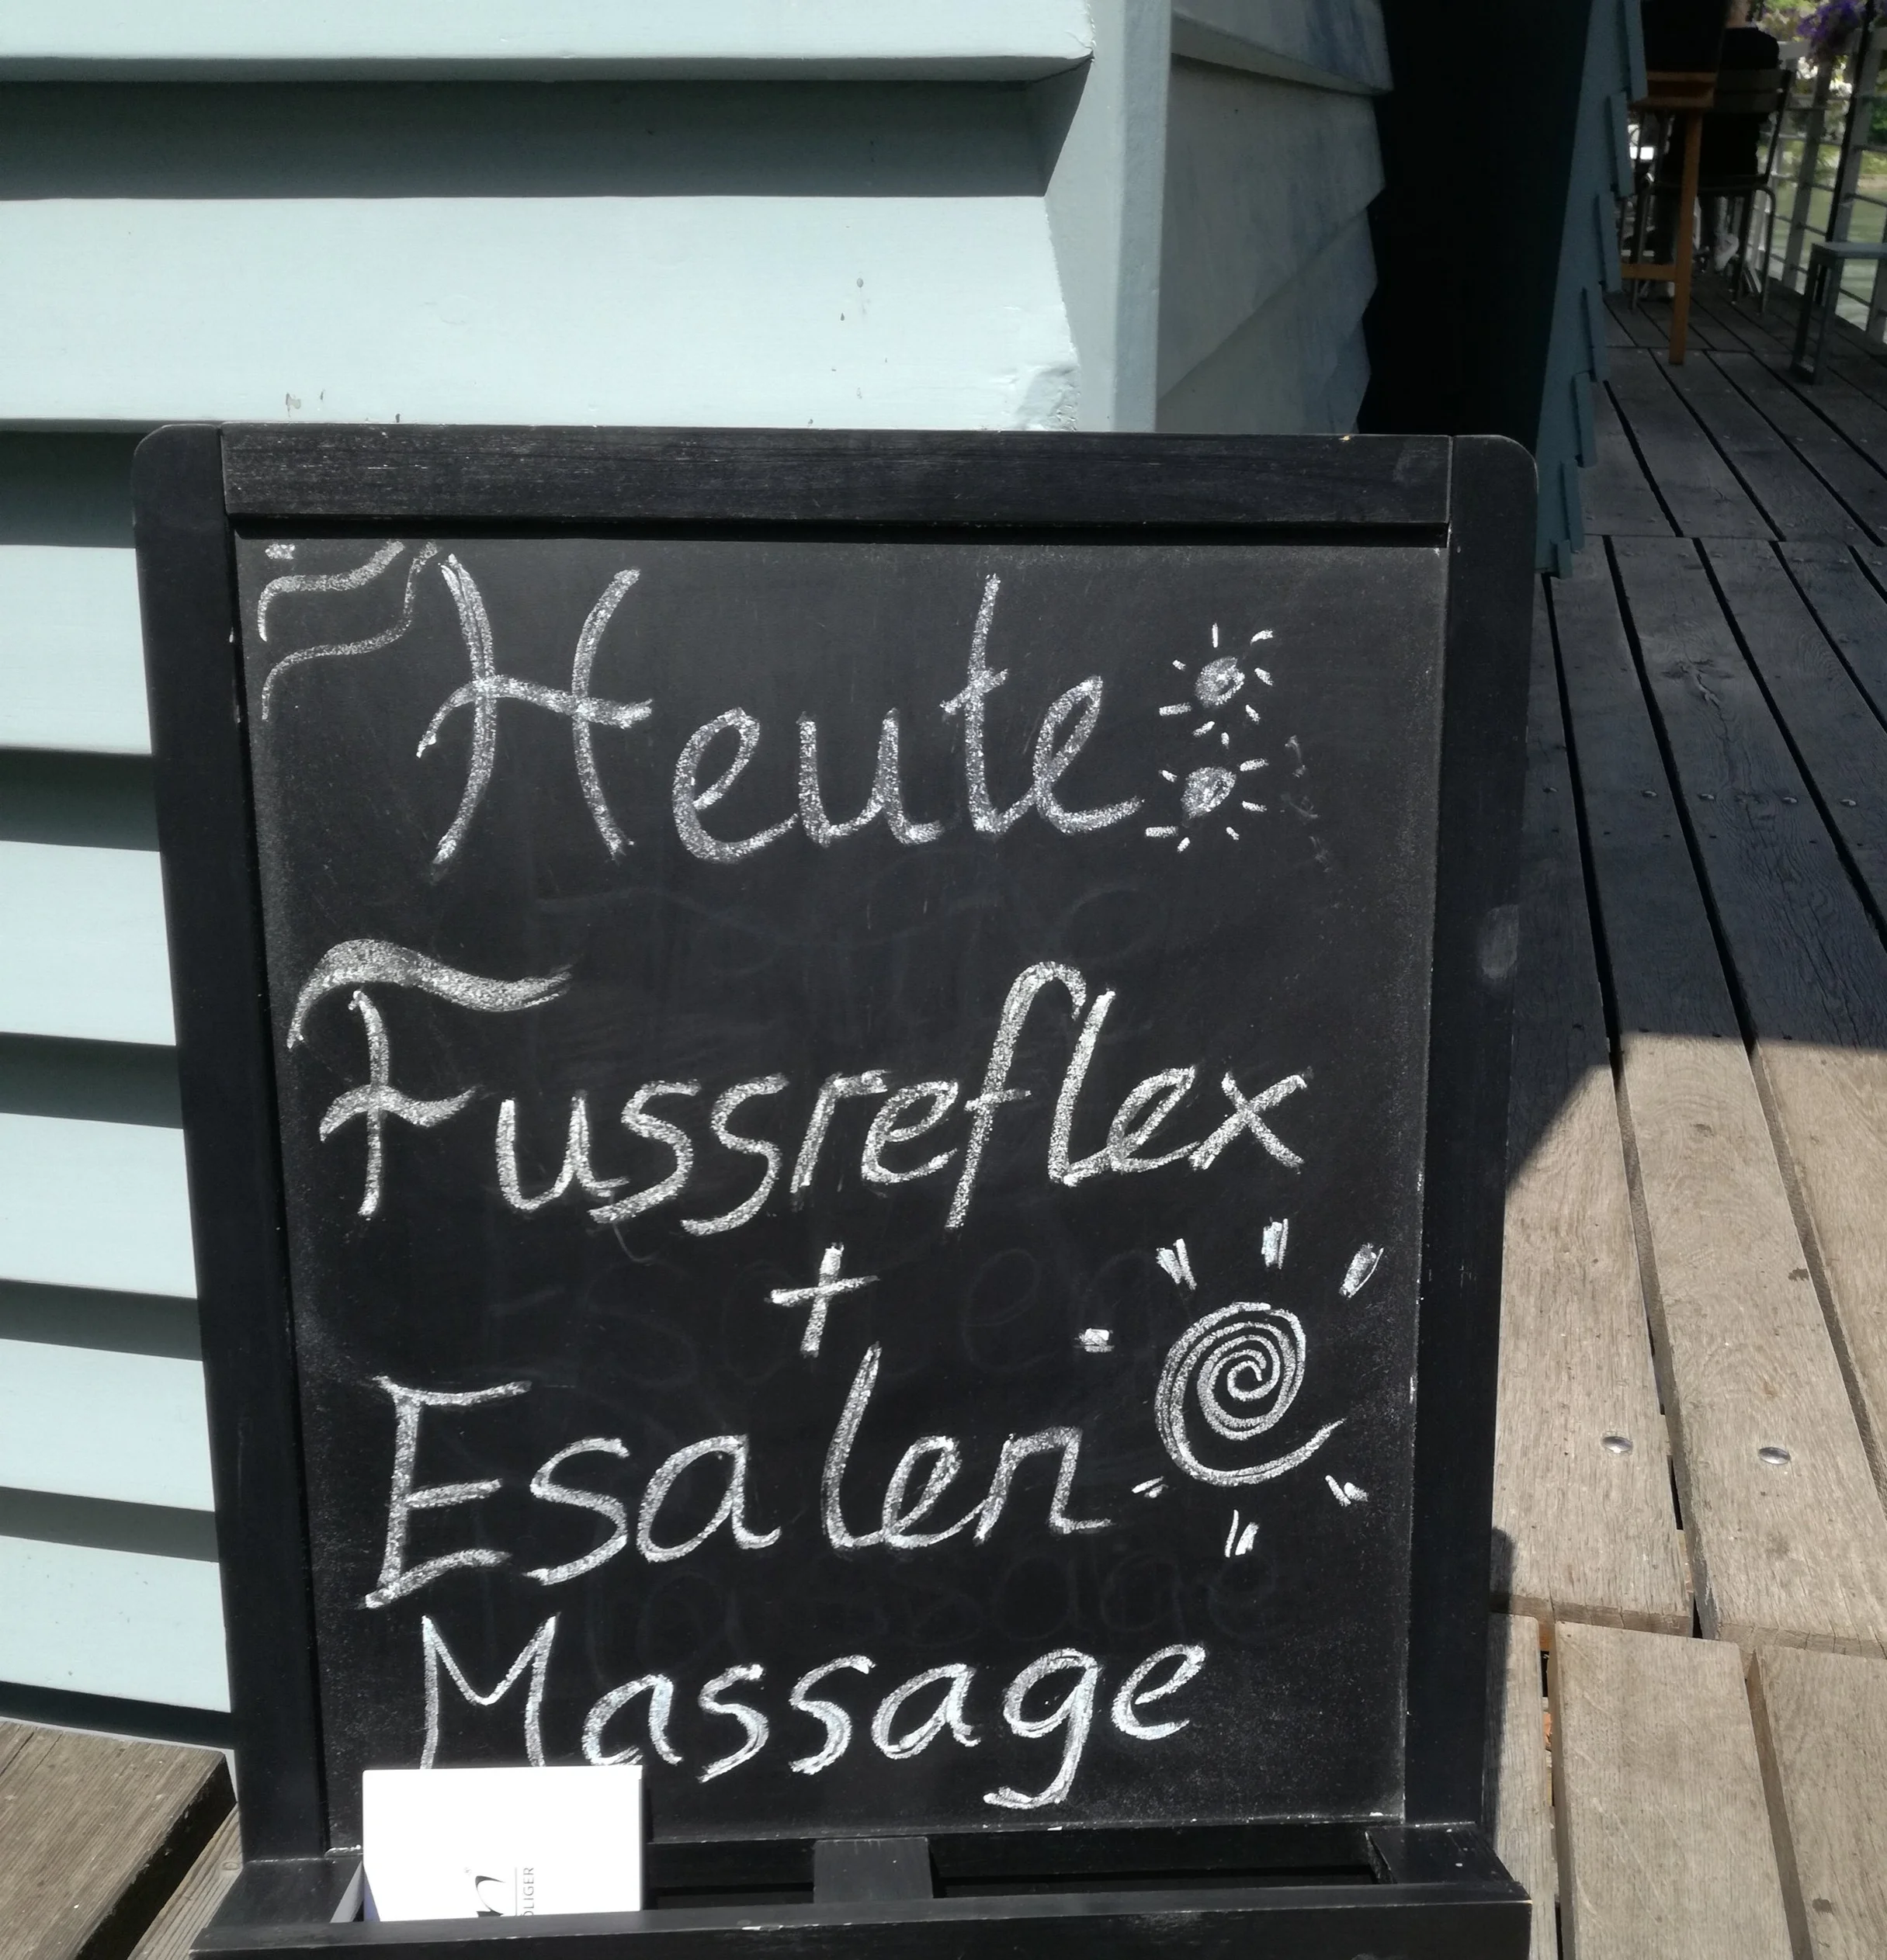 Heute:
Fussreflex
+
Esalen
Massage